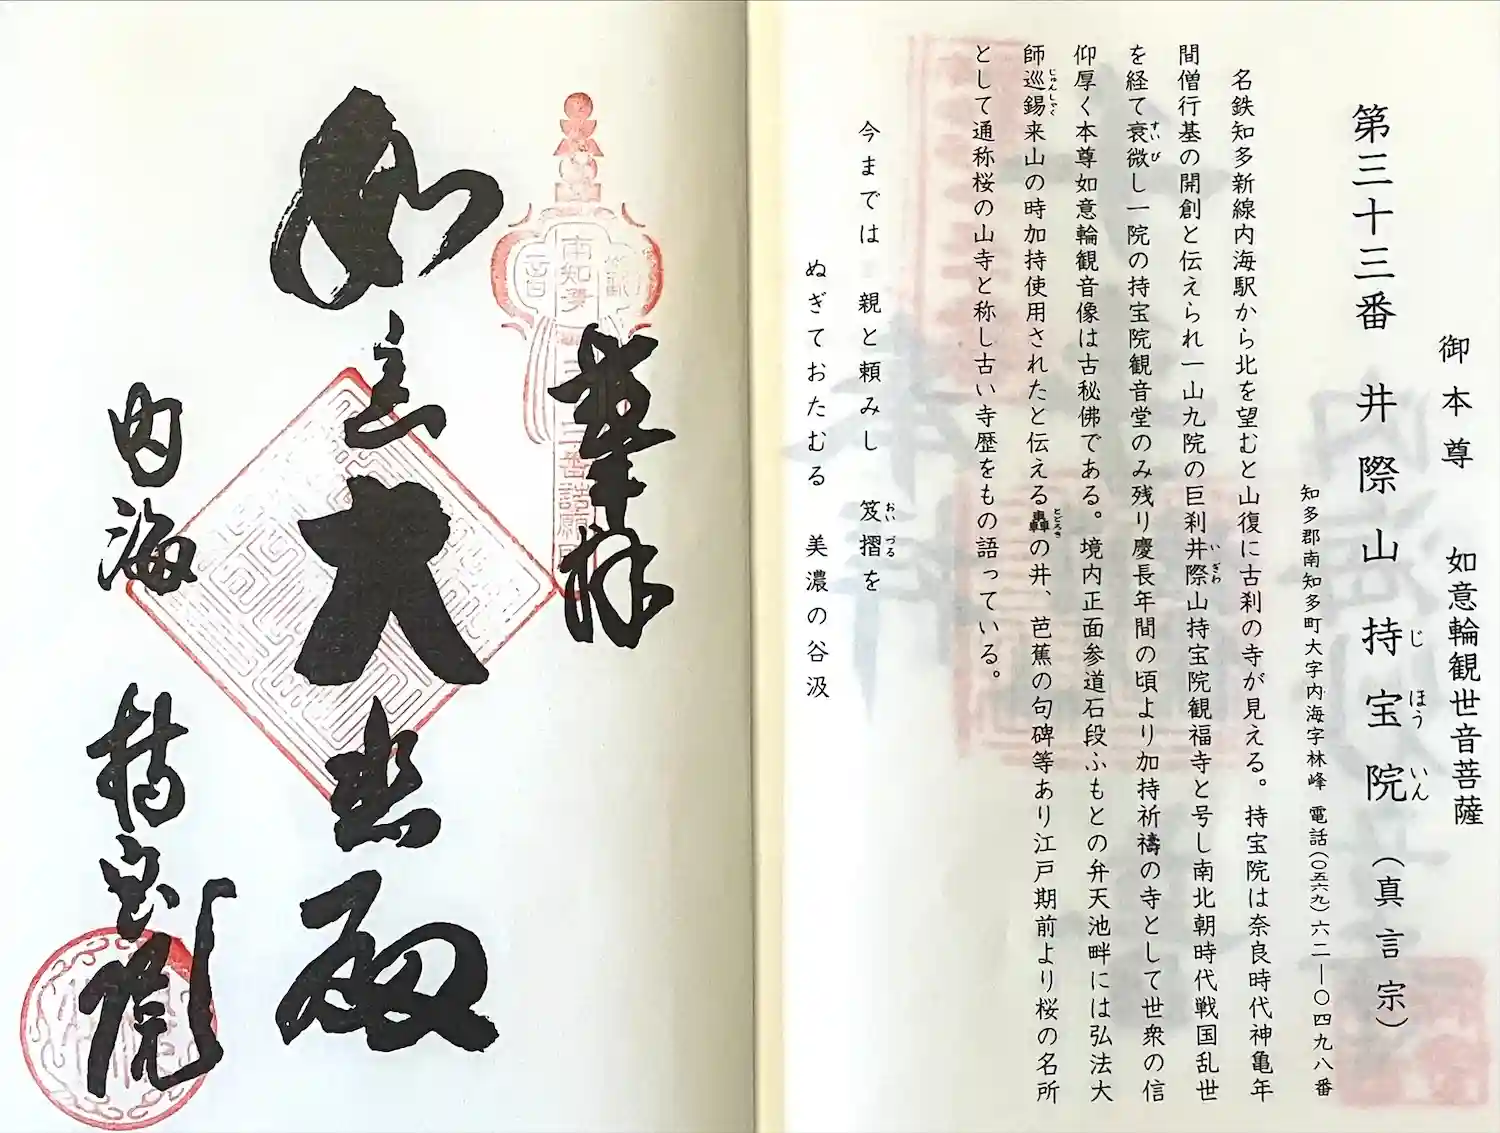 御本尊 如意輪観世音菩薩
第三十三番 井際山 持宝院(真言宗)
じほういん
知多郡南知多町大字内海字林峰 電話(〇五六九)六二―〇四九八番
名鉄知多新線内海駅から北を望むと山復に古刹の寺が見える。持宝院は奈良時代神亀年
間僧行基の開創と伝えられ一山九院の巨刹井際山持宝院観福寺と号し南北朝時代戦国乱世
いぎわ
を経て衰微し一院の持宝院観音堂のみ残り慶長年間の頃より加持祈禱の寺として世衆の信
すいび
仰厚く本尊如意輪観音像は古秘佛である。境内正面参道石段ふもとの弁天池畔には弘法大
師巡錫来山の時加持使用されたと伝える轟の井、芭蕉の句碑等あり江戸期前より桜の名所
じゅんしゃく
とどろき
として通称桜の山寺と称し古い寺歴をもの語っている。
今までは 親と頼みし 笈摺を
おいづる
ぬぎておたむる 美濃の谷汲
奉拝
南知多
三十三番詣願所
如意
大悲殿
内海 持宝院